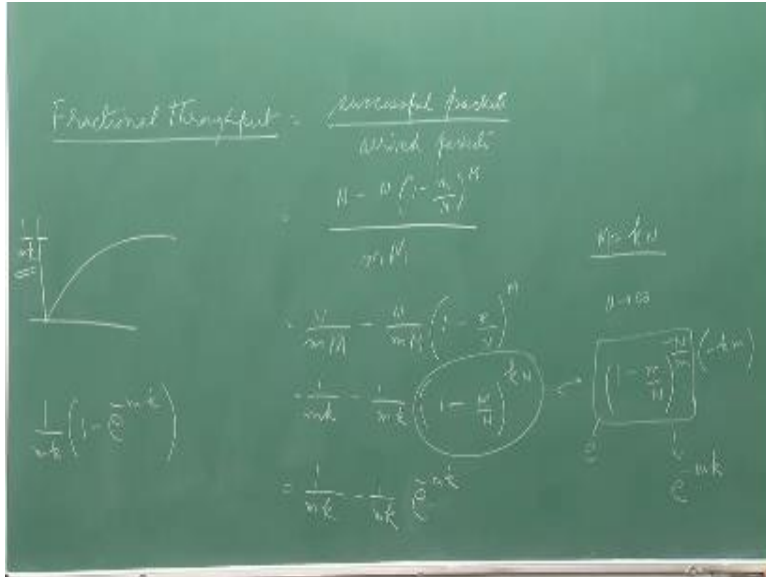 Fractional Throughput = successful packets
arrived packets
= N - N (1 - m/N)^M
mM
M = kN
N→∞
1/mk
= N/mM - N/mM (1 - m/N)^M
= 1/mk - 1/mk (1 - m/N)^kN
(1 - m/N)^-N/m (-km)
e
e^-mk
1/mk (1 - e^-mk)
= 1/mk - 1/mk e^-mk